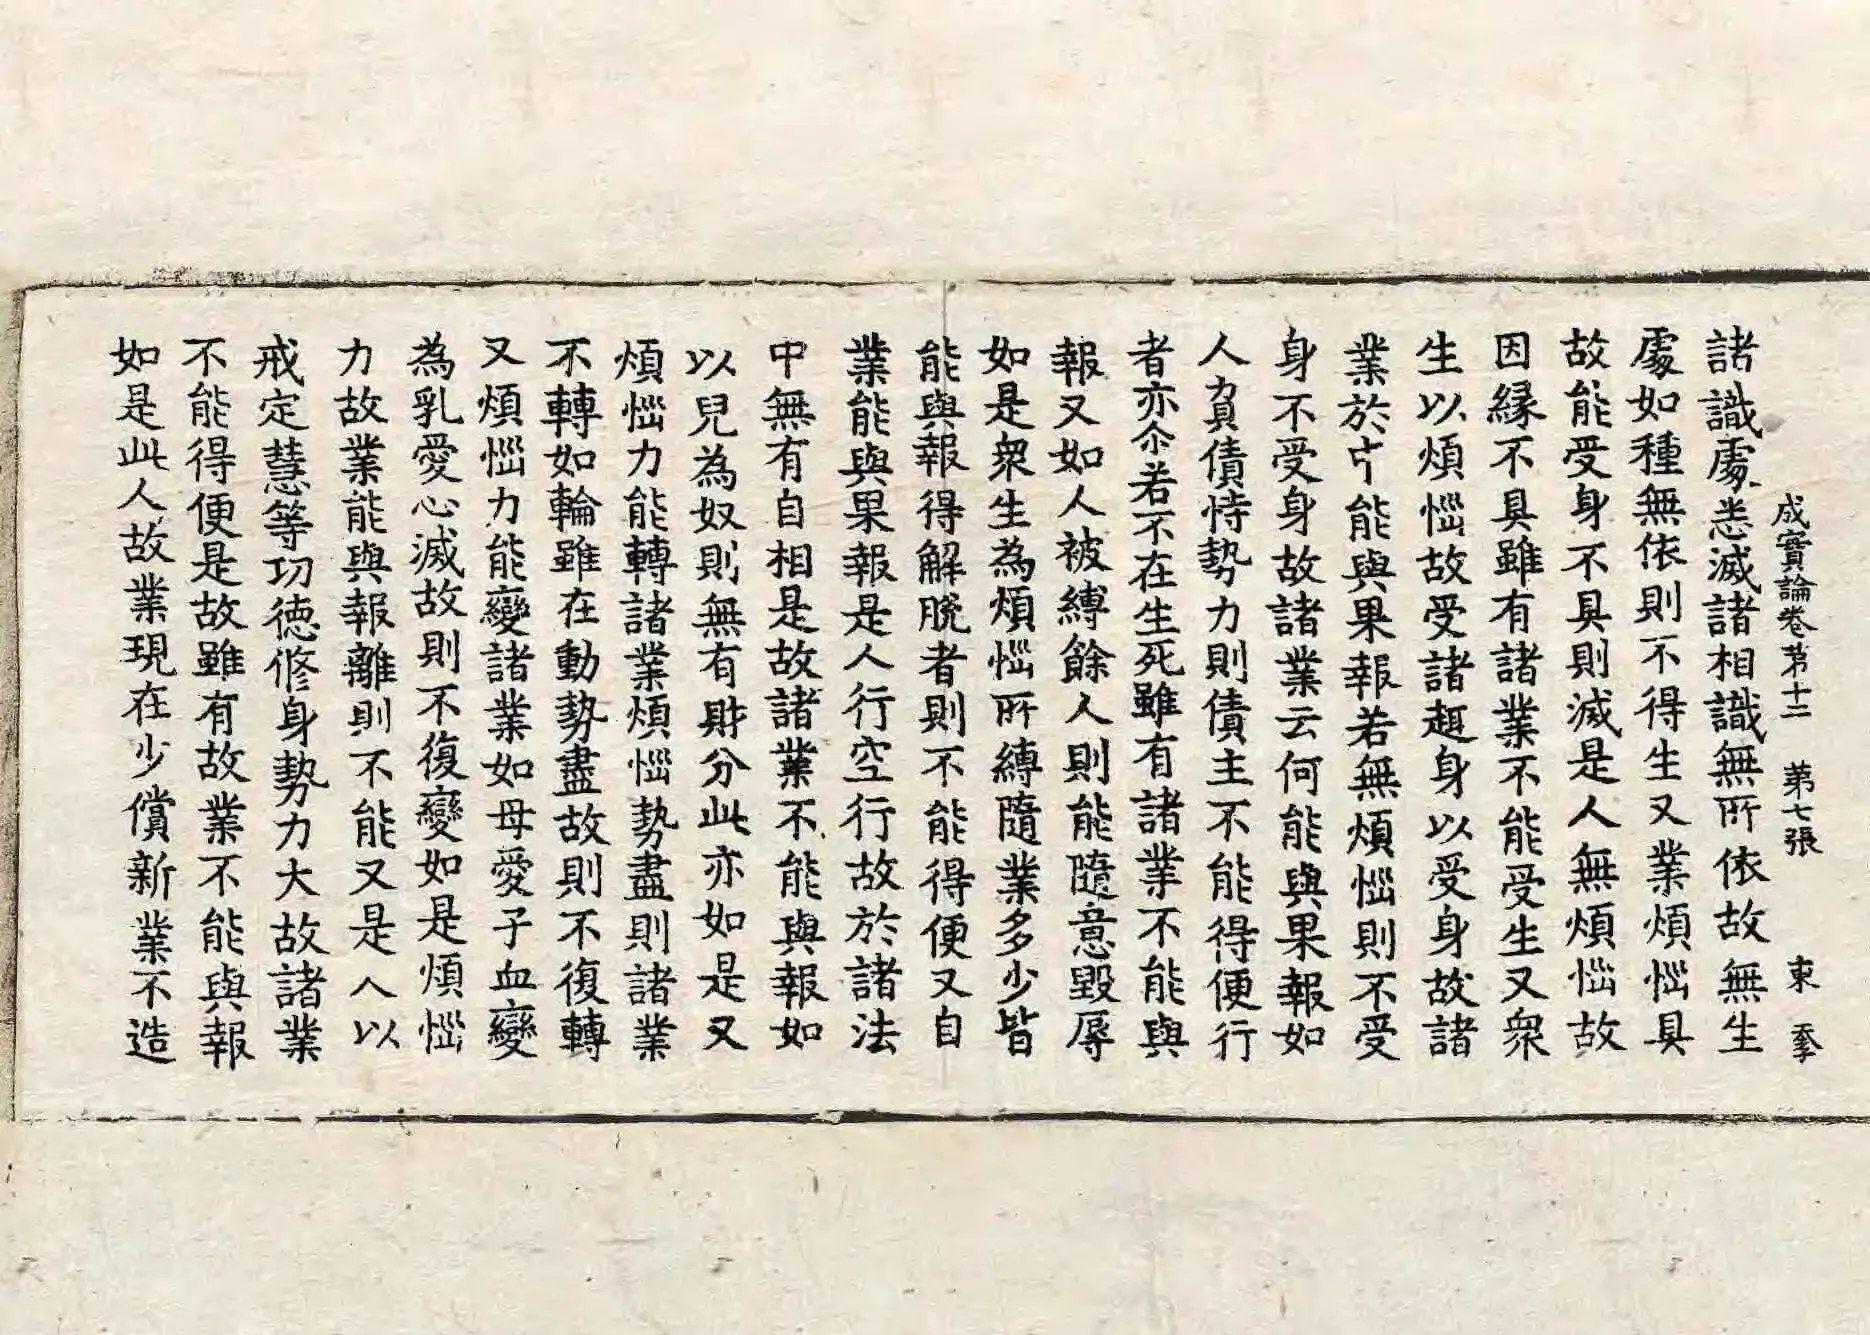 成實論卷苐十二　苐七張　東
諸識處悉滅諸相識無所依故無生
處如種無依則不得生又業煩惱具
故能受身不具則滅是人無煩惱故
因緣不具雖有諸業不能受生又衆
生以煩惱故受諸趣身以受身故諸
業於中能與果報若無煩惱則不受
身不受身故諸業云何能與果報如
人負債恃勢力則債主不能得便行
者亦尒若不在生死雖有諸業不能與
報又如人被縛餘人則能隨意毀辱
如是衆生為煩惱所縛隨業多少皆
能與報得解脫者則不能得便又自
業能與果報是人行空行故於諸法
中無有自相是故諸業不能與報如
以兒為奴則無有財分此亦如是又
煩惱力能轉諸業煩惱勢盡則諸業
不轉如輪雖在動勢盡故則不復轉
又煩惱力能變諸業如母愛子血變
為乳愛心滅故則不復變如是煩惱
力故業能與報離則不能又是人以
戒定慧等功德修身勢力大故諸業
不能得便是故雖有故業不能與報
如是此人故業現在少償新業不造